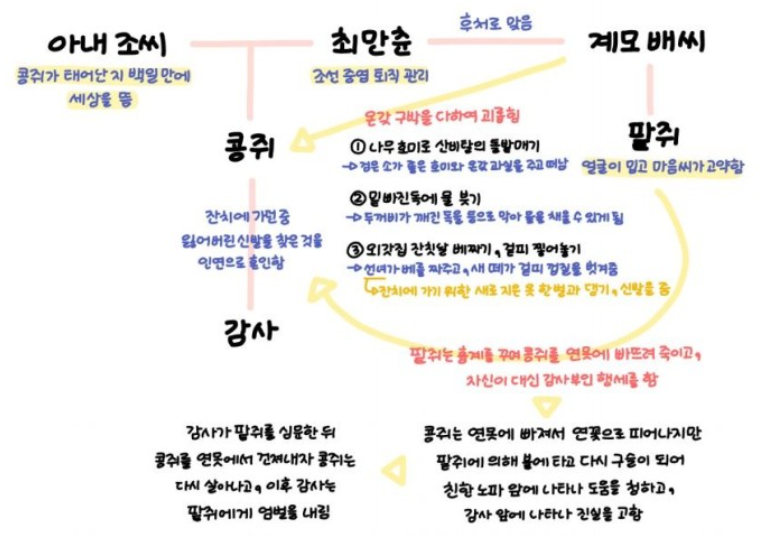 후처로 맞음
아내 조씨
최만춘
계모 배씨
콩쥐가 태어난 지 백일만에
세상을 뜸
조선 중엽 퇴직 관리
온갖 구박을 다하여 괴롭힘
콩쥐
팥쥐
얼굴이 밉고 마음씨가 고약함
① 나무 호미로 산비탈의 돌밭매기
→ 검은 소가 좋은 호미와 온갖 과실을 주고 떠남
② 밑빠진독에 물 붓기
→ 두꺼비가 깨진 독을 등으로 막아 물을 채울 수 있게 됨
③ 외갓집 잔칫날 베짜기, 겉피 찧어놓기
→ 선녀가 베를 짜주고, 새 떼가 겉피 껍질을 벗겨줌
↳ 잔치에 가기 위한 새로 지은 옷 한벌과 댕기, 신발을 줌
잔치에 가던 중
잃어버린 신발을 찾은 것을
인연으로 혼인함
감사
팥쥐는 흉계를 꾸며 콩쥐를 연못에 빠뜨려 죽이고,
자신이 대신 감사부인 행세를 함
콩쥐는 연못에 빠져서 연꽃으로 피어나지만
팥쥐에 의해 불에 타고 다시 구슬이 되어
친한 노파 앞에 나타나 도움을 청하고,
감사 앞에 나타나 진실을 고함
감사가 팥쥐를 심문한 뒤
콩쥐를 연못에서 건져내자 콩쥐는
다시 살아나고, 이후 감사는
팥쥐에게 엄벌을 내림